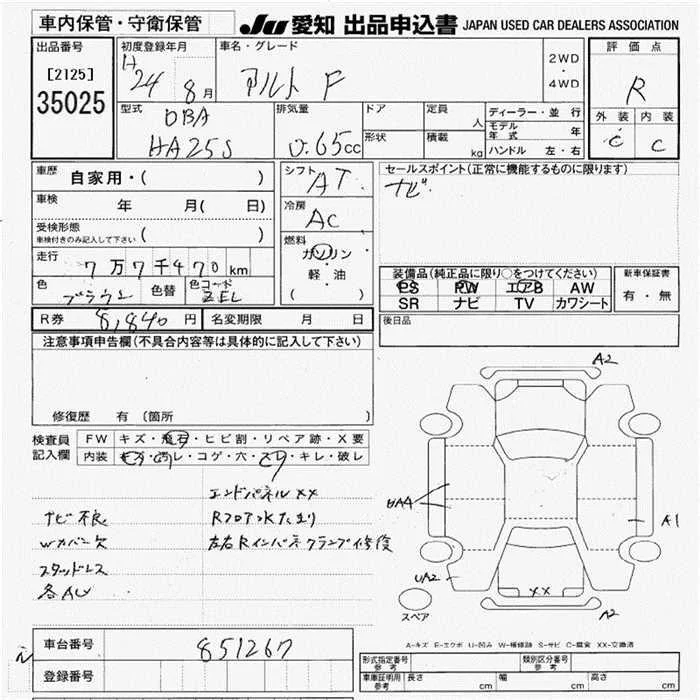 車内保管・守衛保管
JU 愛知 出品申込書 JAPAN USED CAR DEALERS ASSOCIATION
出品番号
[2125]
35025
初度登録年月
H 24 8月
車名・グレード
アルト F
2WD
・
4WD
評価点
R
外装 内装
C C
型式
DBA
HA25S
排気量
0.65cc
ドア
形状
定員 人
積載 kg
ディーラー・並 行
モデル年式 年
ハンドル 左・右
車歴 自家用・( )
車検 年 月( 日)
受検形態
車検付きのみ記入して下さい ( )
走行 7万7千470km
色 ブラウン 色替 色コード ZEL
シフト AT
冷房 AC
燃料
ガソリン
・
軽・油
( )
セールスポイント(正常に機能するものに限ります)
ナビ
装備品(純正品に限り○をつけてください)
PS PW エアB AW
SR ナビ TV カワシート
新車保証書
有・無
R券 8,840円 名変期限 月 日
後日品
注意事項申告欄(不具合内容等は具体的に記入して下さい)
修復歴 有 (箇所 )
検査員記入欄
FW キズ・飛石・ヒビ割・リペア跡・X要
内装 キズ・汚レ・コゲ・穴・スリ・キレ・破レ
エンドパネルXX
ナビ不良 Rフロア水たまり
Wカバー欠 左右Rインパネクランプ修復
スタッドレス
各AU
A2
UA4
A1
UA2
XX
A2
スペア
A-キズ E-エクボ U-凹み W-補修跡 S-サビ C-腐食 XX-交換済
車台番号 851267
登録番号
形式指定番号 参考 類別区分番号 参考
車庫証明用 参考 長さ cm 幅 cm 高さ cm